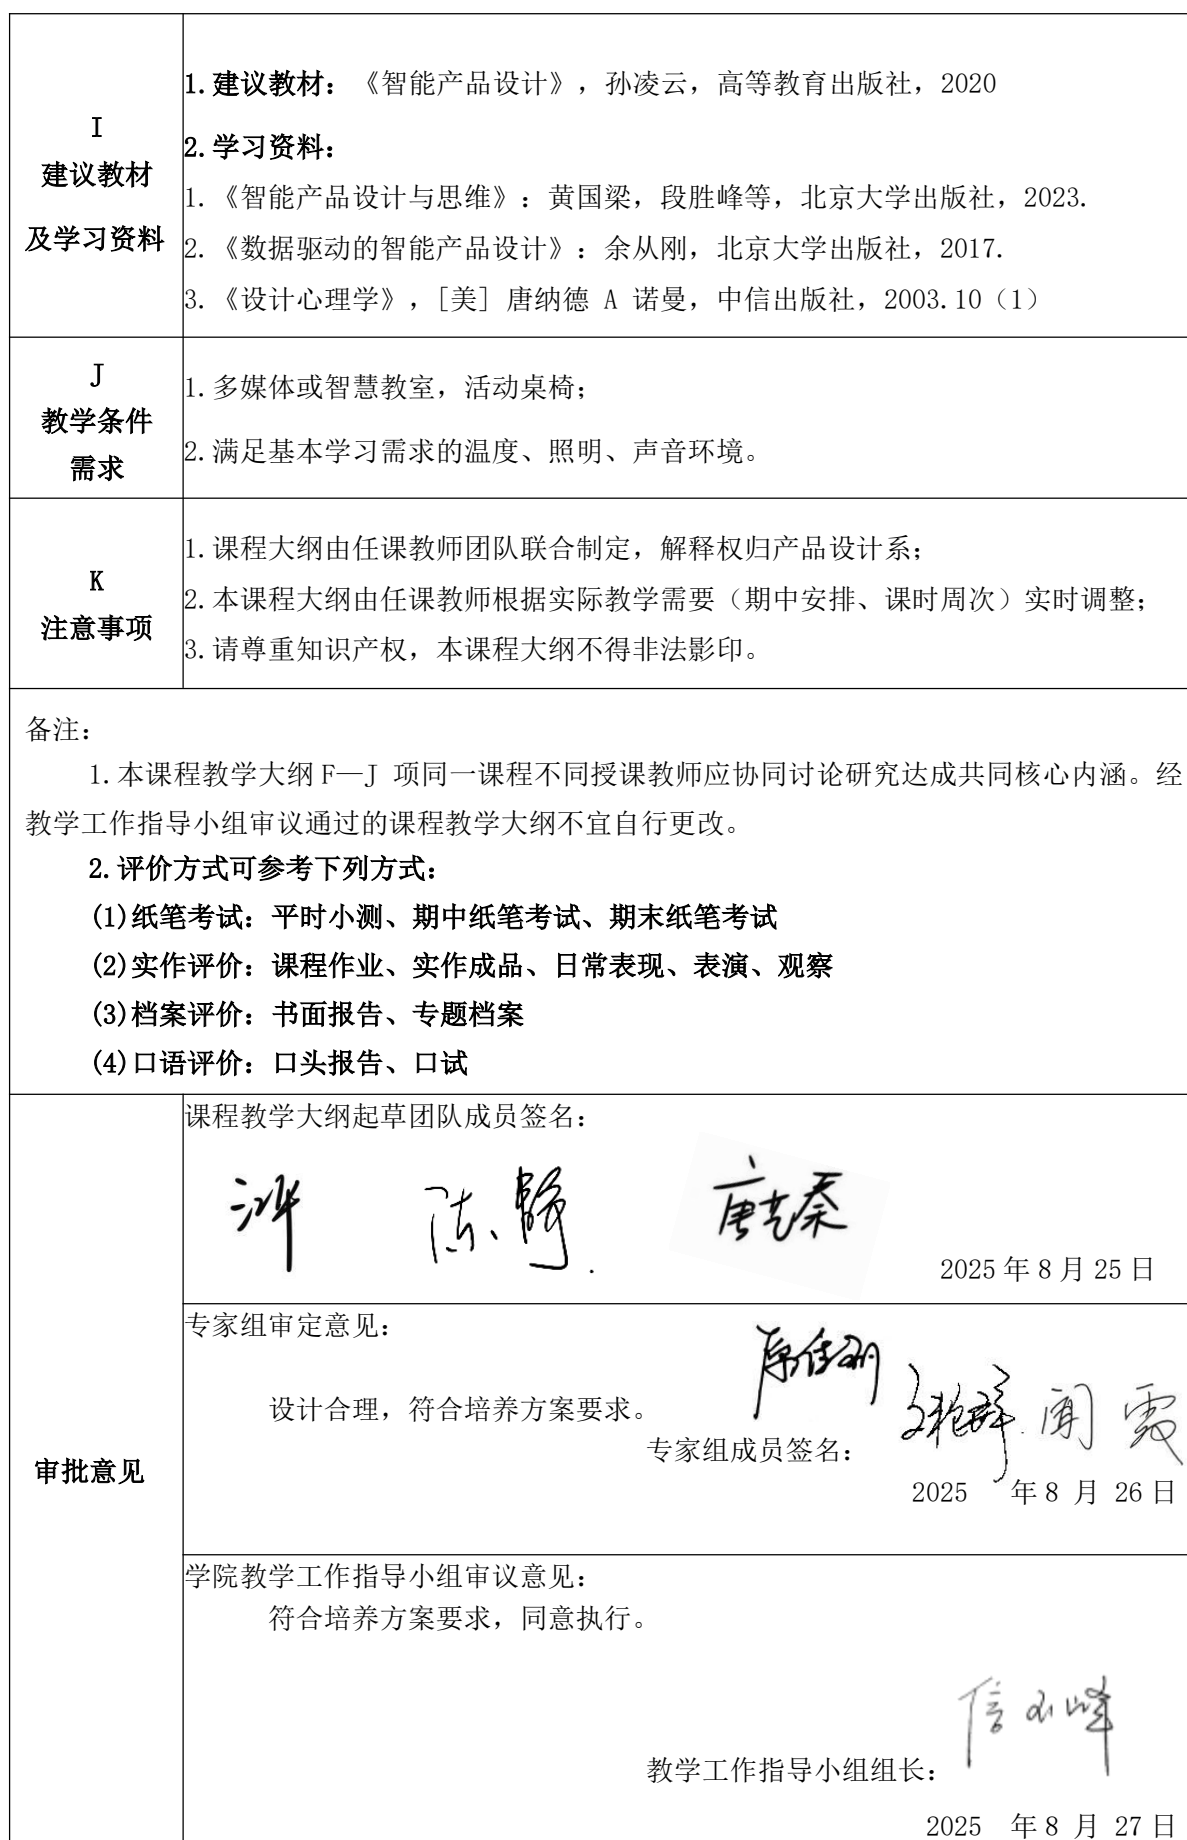 I
建议教材
及学习资料
1.建议教材：《智能产品设计》，孙凌云，高等教育出版社，2020
2.学习资料：
1.《智能产品设计与思维》：黄国梁，段胜峰等，北京大学出版社，2023.
2.《数据驱动的智能产品设计》：余从刚，北京大学出版社，2017.
3.《设计心理学》，[美] 唐纳德 A 诺曼，中信出版社，2003.10（1）
J
教学条件
需求
1.多媒体或智慧教室，活动桌椅；
2.满足基本学习需求的温度、照明、声音环境。
K
注意事项
1.课程大纲由任课教师团队联合制定，解释权归产品设计系；
2.本课程大纲由任课教师根据实际教学需要（期中安排、课时周次）实时调整；
3.请尊重知识产权，本课程大纲不得非法影印。
备注：
1.本课程教学大纲 F—J 项同一课程不同授课教师应协同讨论研究达成共同核心内涵。经
教学工作指导小组审议通过的课程教学大纲不宜自行更改。
2.评价方式可参考下列方式：
(1)纸笔考试：平时小测、期中纸笔考试、期末纸笔考试
(2)实作评价：课程作业、实作成品、日常表现、表演、观察
(3)档案评价：书面报告、专题档案
(4)口语评价：口头报告、口试
审批意见
课程教学大纲起草团队成员签名：
陈静
2025 年 8 月 25 日
专家组审定意见：
设计合理，符合培养方案要求。
专家组成员签名：
闻霞
2025 年 8 月 26 日
学院教学工作指导小组审议意见：
符合培养方案要求，同意执行。
教学工作指导小组组长：
2025 年 8 月 27 日